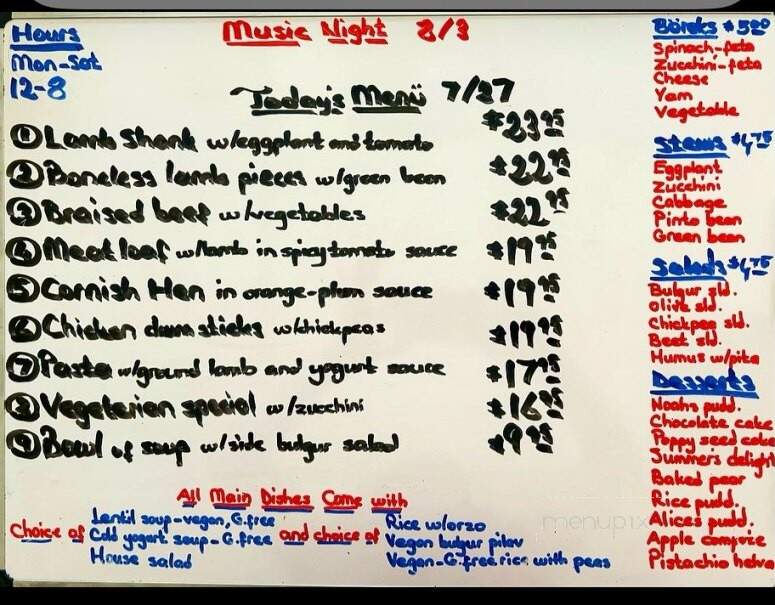 Hours
Mon-Sat
12-8
Music Night 8/3
Today's Menü 7/27
① Lamb Shank w/eggplant and tomato $23.95
② Boneless lamb pieces w/green bean $22.95
③ Braised beef w/vegetables $22.95
④ Meat loaf w/lamb in spicy tomato sauce $19.95
⑤ Cornish Hen in orange-plum sauce $19.95
⑥ Chicken drumsticks w/chickpeas $19.95
⑦ Pasta w/ground lamb and yogurt sauce $17.95
⑧ Vegeterian special w/zucchini $16.95
⑨ Bowl of soup w/side bulgur salad $9.95
All Main Dishes Come with
Choice of
Lentil soup-vegan, G.free
Cold yogurt soup-G.free
House salad
and choice of
Rice w/orzo
Vegan bulgur pilav
Vegan-G.free rice with peas
Böreks $5.00
Spinach-feta
Zucchini-feta
Cheese
Yam
Vegetable
Stews $4.75
Eggplant
Zucchini
Cabbage
Pinto bean
Green bean
Salads $4.75
Bulgur sld.
Olive sld.
Chickpea sld.
Beet sld.
Humus w/pita
Desserts
Noahs pudd.
Chocolate cake
Poppy seed cake
Summer's delight
Baked pear
Rice pudd.
Alices pudd.
Apple compote
Pistachio helva